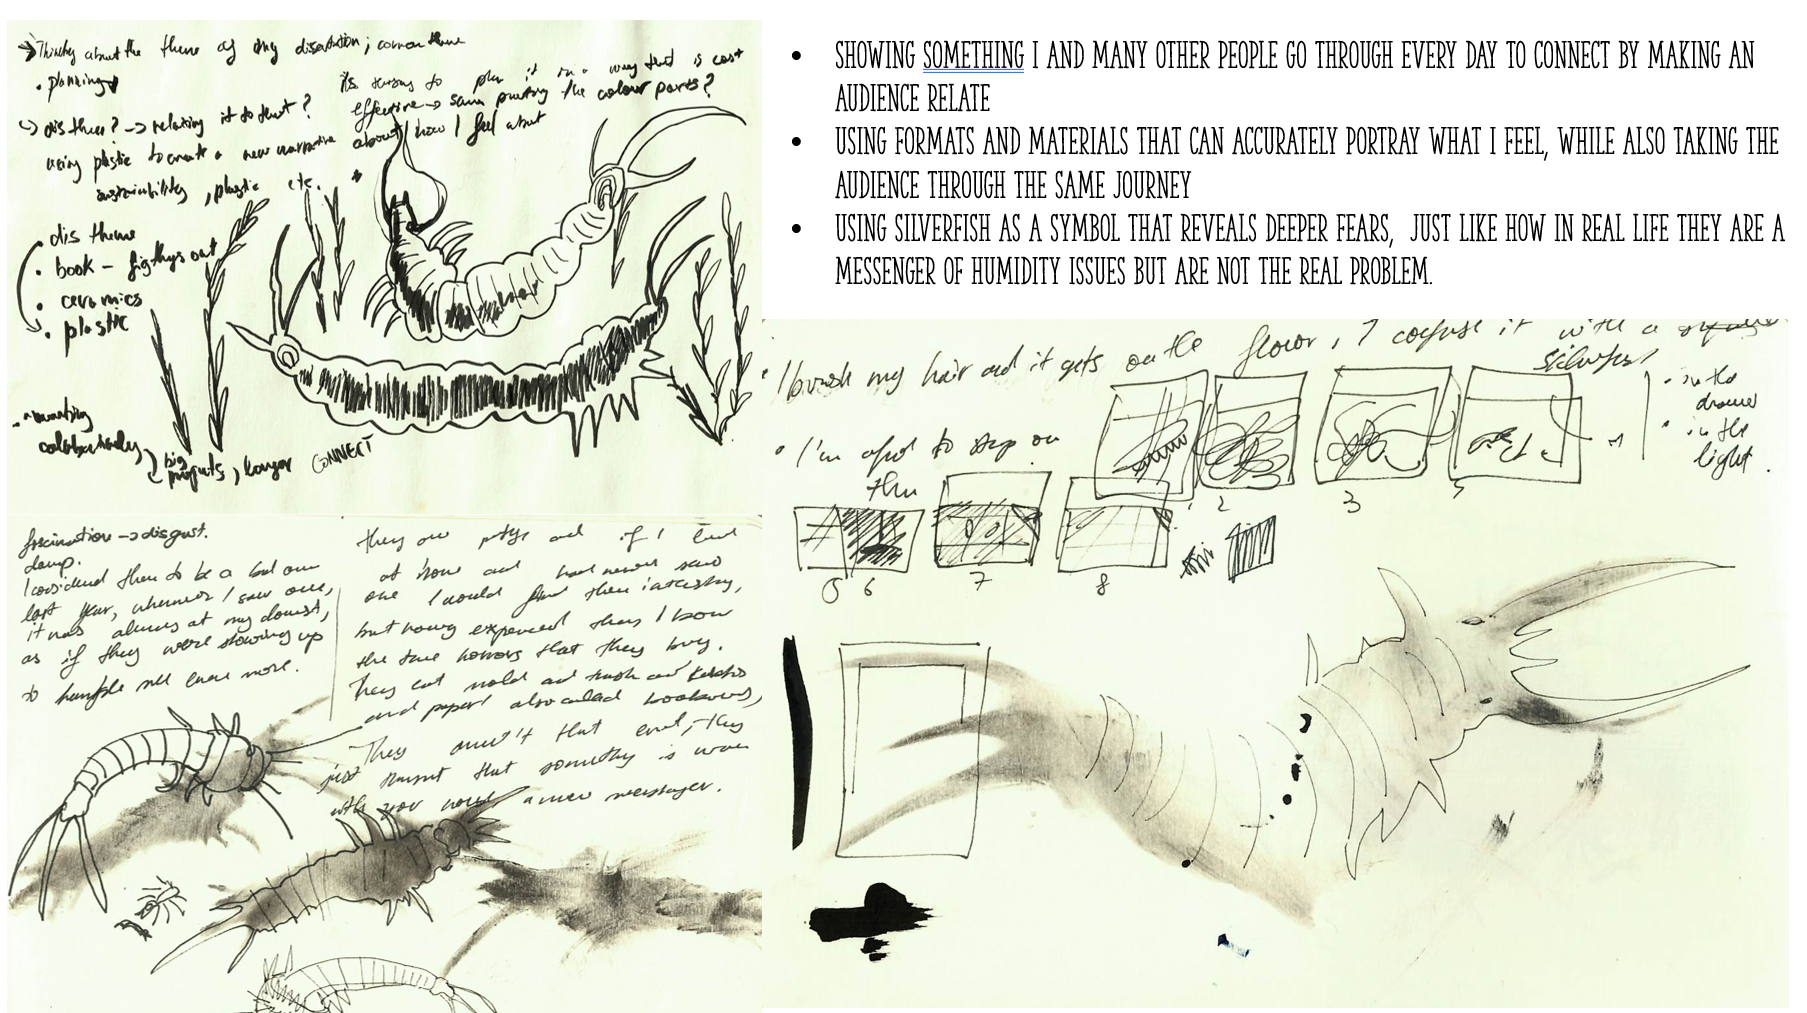 → Thinking about the theme of my disertation; common theme
• planning
its turning to plan it in a way that is cost
effective → same printing the colour parts?
↳ dis theme? → relating it to that?
using plastic to create a new narrative about how I feel about
sustainability, plastic etc.
• dis theme
• book – figthys out
• ceramics
• plastic
• working
colaboratively
big
projects, longer CONNECT
• SHOWING SOMETHING I AND MANY OTHER PEOPLE GO THROUGH EVERY DAY TO CONNECT BY MAKING AN
AUDIENCE RELATE
• USING FORMATS AND MATERIALS THAT CAN ACCURATELY PORTRAY WHAT I FEEL, WHILE ALSO TAKING THE
AUDIENCE THROUGH THE SAME JOURNEY
• USING SILVERFISH AS A SYMBOL THAT REVEALS DEEPER FEARS, JUST LIKE HOW IN REAL LIFE THEY ARE A
MESSENGER OF HUMIDITY ISSUES BUT ARE NOT THE REAL PROBLEM.
fascination → disgust.
damp.
I considerd them to be a bad omen
last year, whenever I saw one,
it was always at my lowest,
as if they were showing up
to humble me even more.
they are and if I lived
at home and had never saw
one I would find them intersting,
but having experienced them I know
the true horrors that they bring.
They eat mold and and
and paper also called bookworms,
They aren't that evil, they
just that something is wrong
with your home a mere messenger.
• I brush my hair and it gets on the floor, I confuse it with a
silverfish
• I'm afraid to step on
them
• in the
drawer
• in the
light.
2
3
5
5 6
7
8